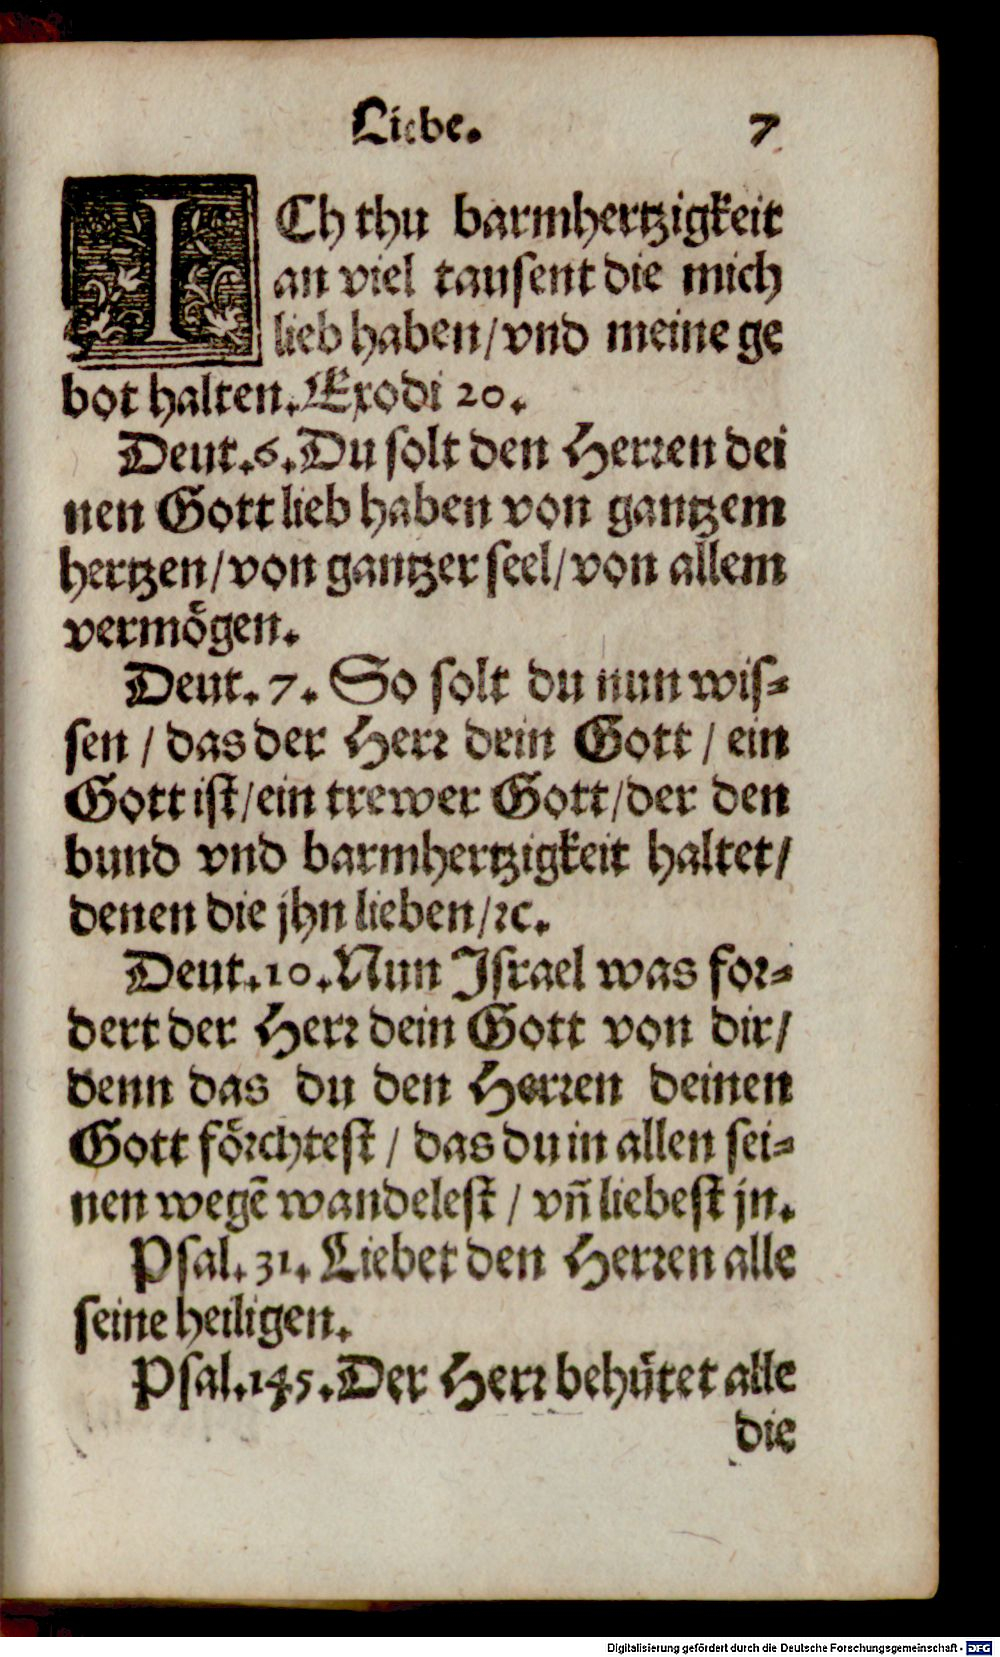 Liebe. 7
ICh thu barmhertzigkeit
an viel tausent die mich
lieb haben/vnd meine ge
bot halten. Exodi 20.
Deut.6. Du solt den Herren dei
nen Gott lieb haben von gantzem
hertzen/von gantzer seel/von allem
vermögen.
Deut. 7. So solt du nun wis-
sen / das der Herr dein Gott / ein
Gott ist/ein trewer Gott/der den
bund vnd barmhertzigkeit haltet/
denen die jhn lieben/ꝛc.
Deut.10. Nun Israel was for-
dert der Herr dein Gott von dir/
denn das du den Herren deinen
Gott förchtest / das du in allen sei-
nen wegē wandelest / vn̄ liebest jn.
Psal. 31. Liebet den Herren alle
seine heiligen.
Psal.145. Der Herr behütet alle
die
Digitalisierung gefördert durch die Deutsche Forschungsgemeinschaft - DFG